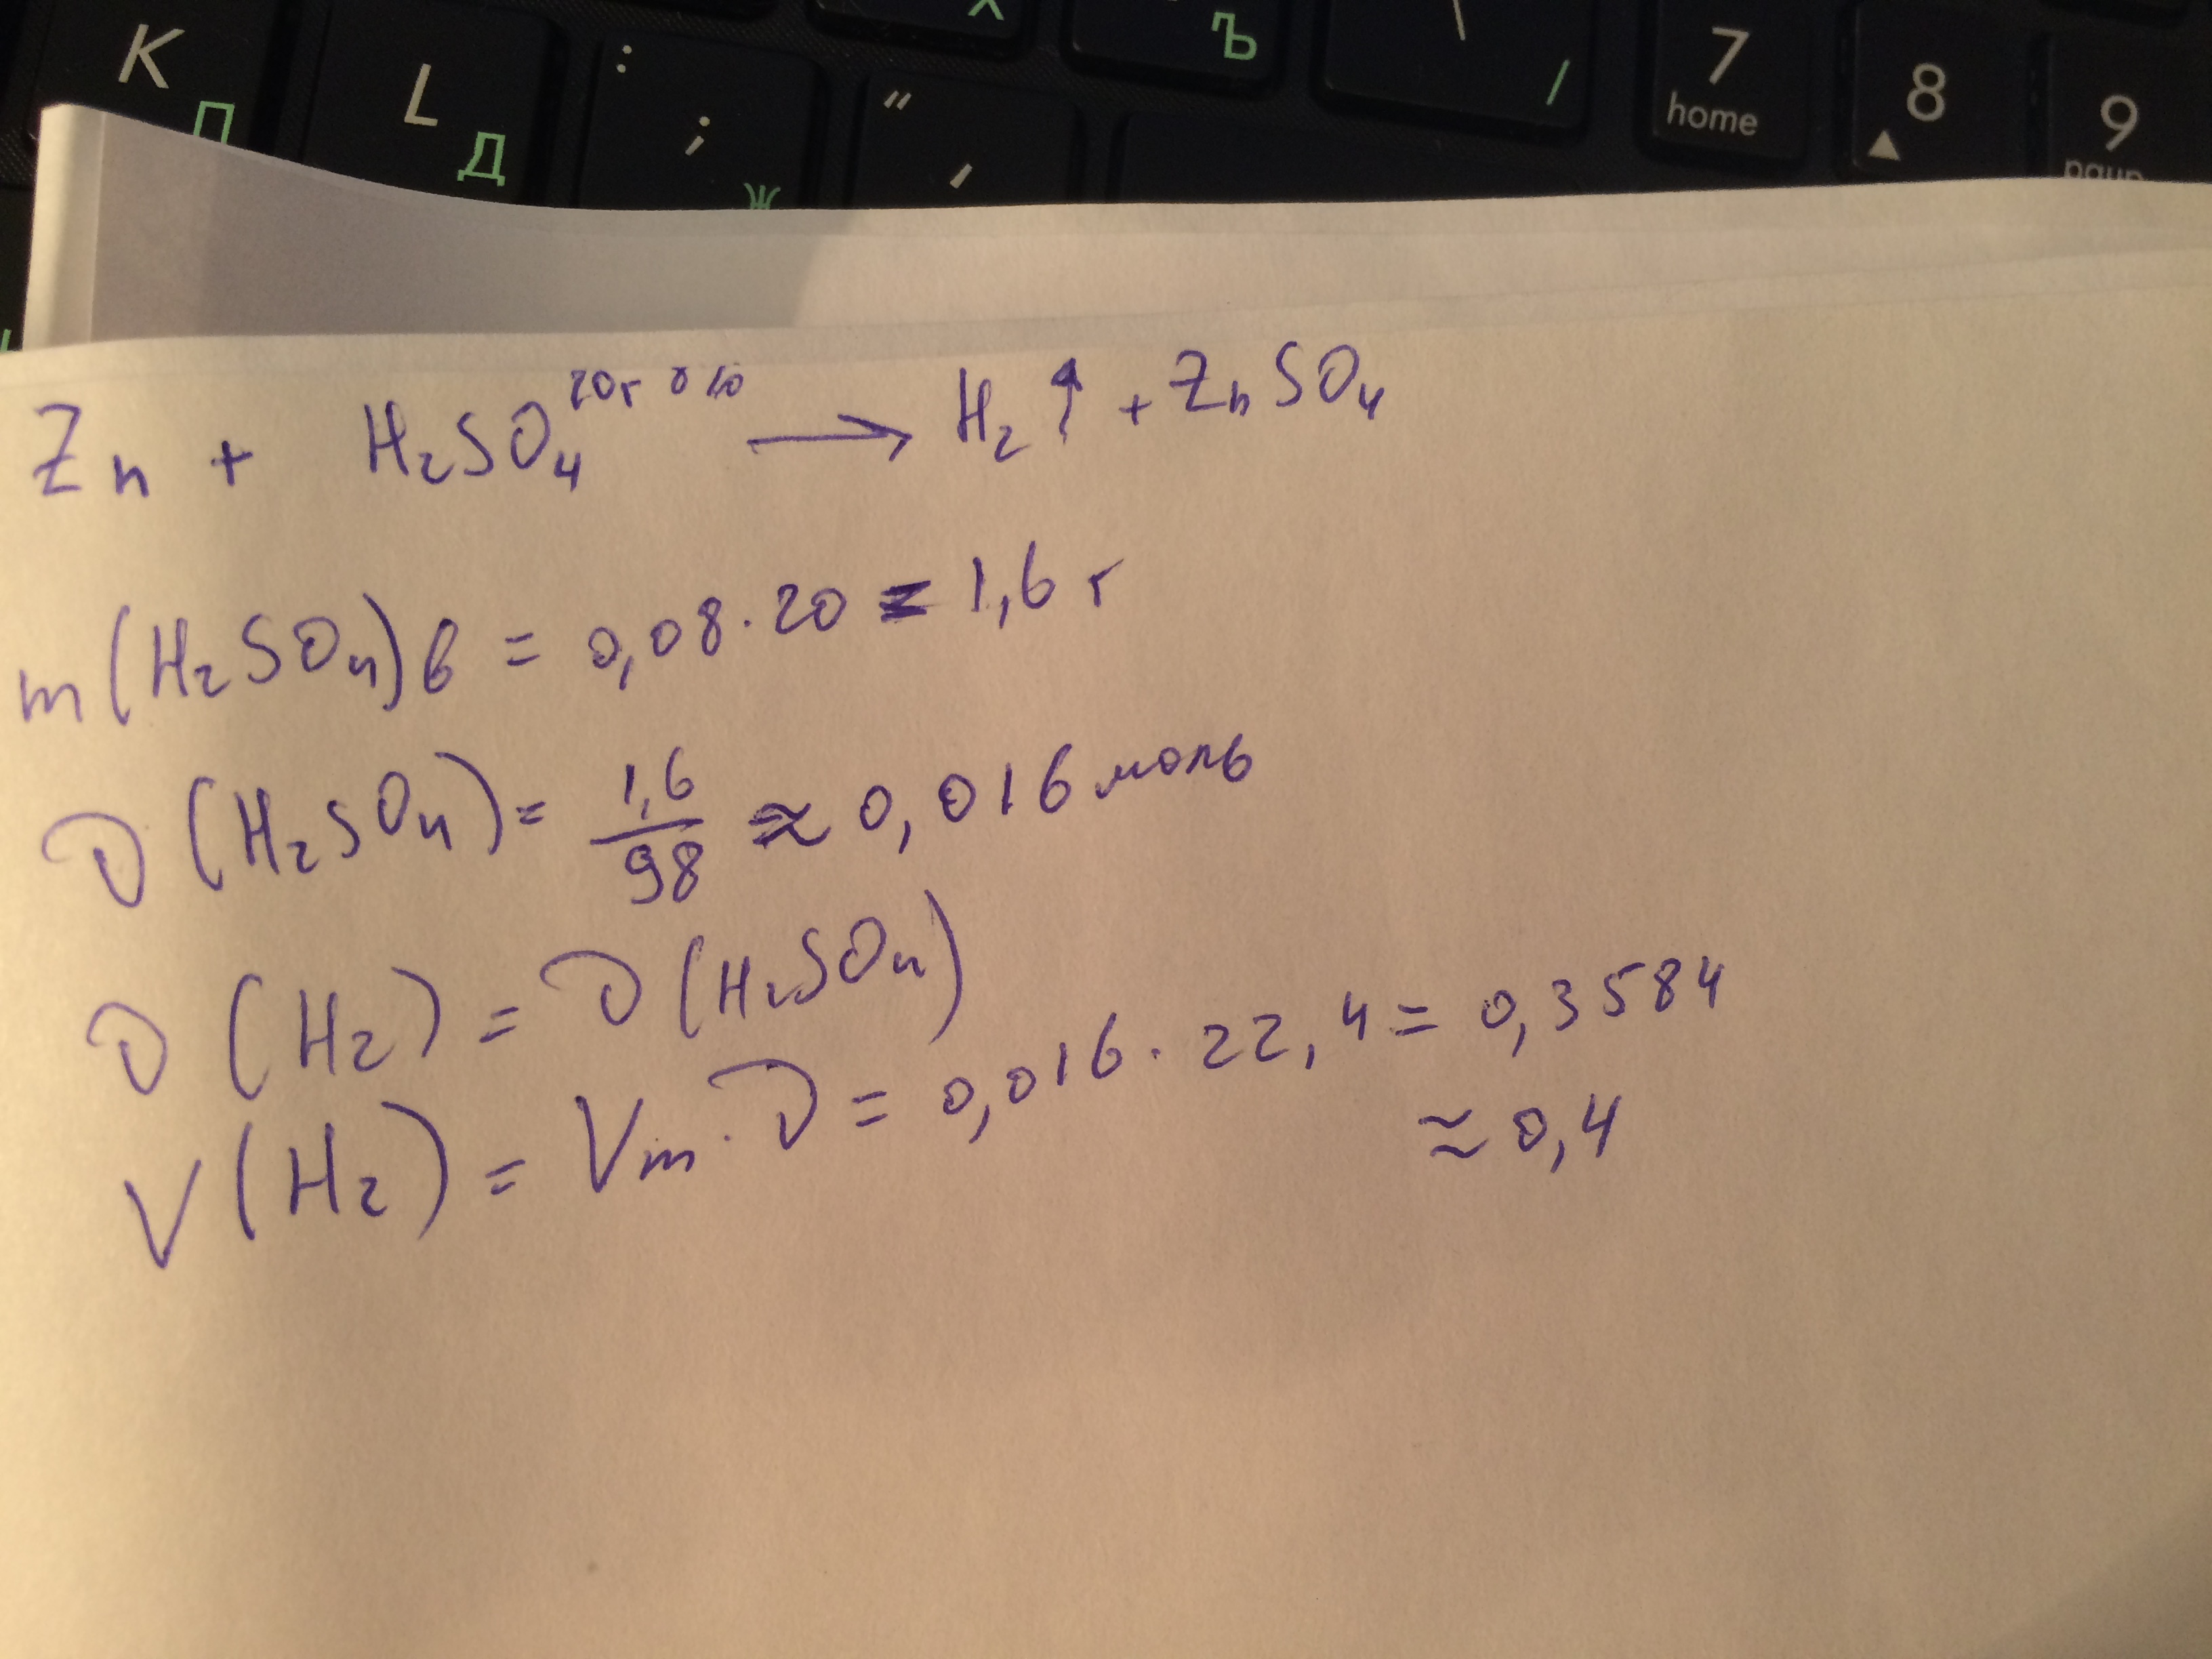 К Х Ъ \ / 7 home 8 9 pgup
K Л L Д : ; Ж " ,
Zn + H₂SO₄ 20г → H₂↑ + ZnSO₄
m(H₂SO₄)в = 0,08·20 = 1,6 г
ν(H₂SO₄) = 1,6/98 ≈ 0,016 моль
ν(H₂) = ν(H₂SO₄)
V(H₂) = Vm·ν = 0,016·22,4 = 0,3584
≈ 0,4